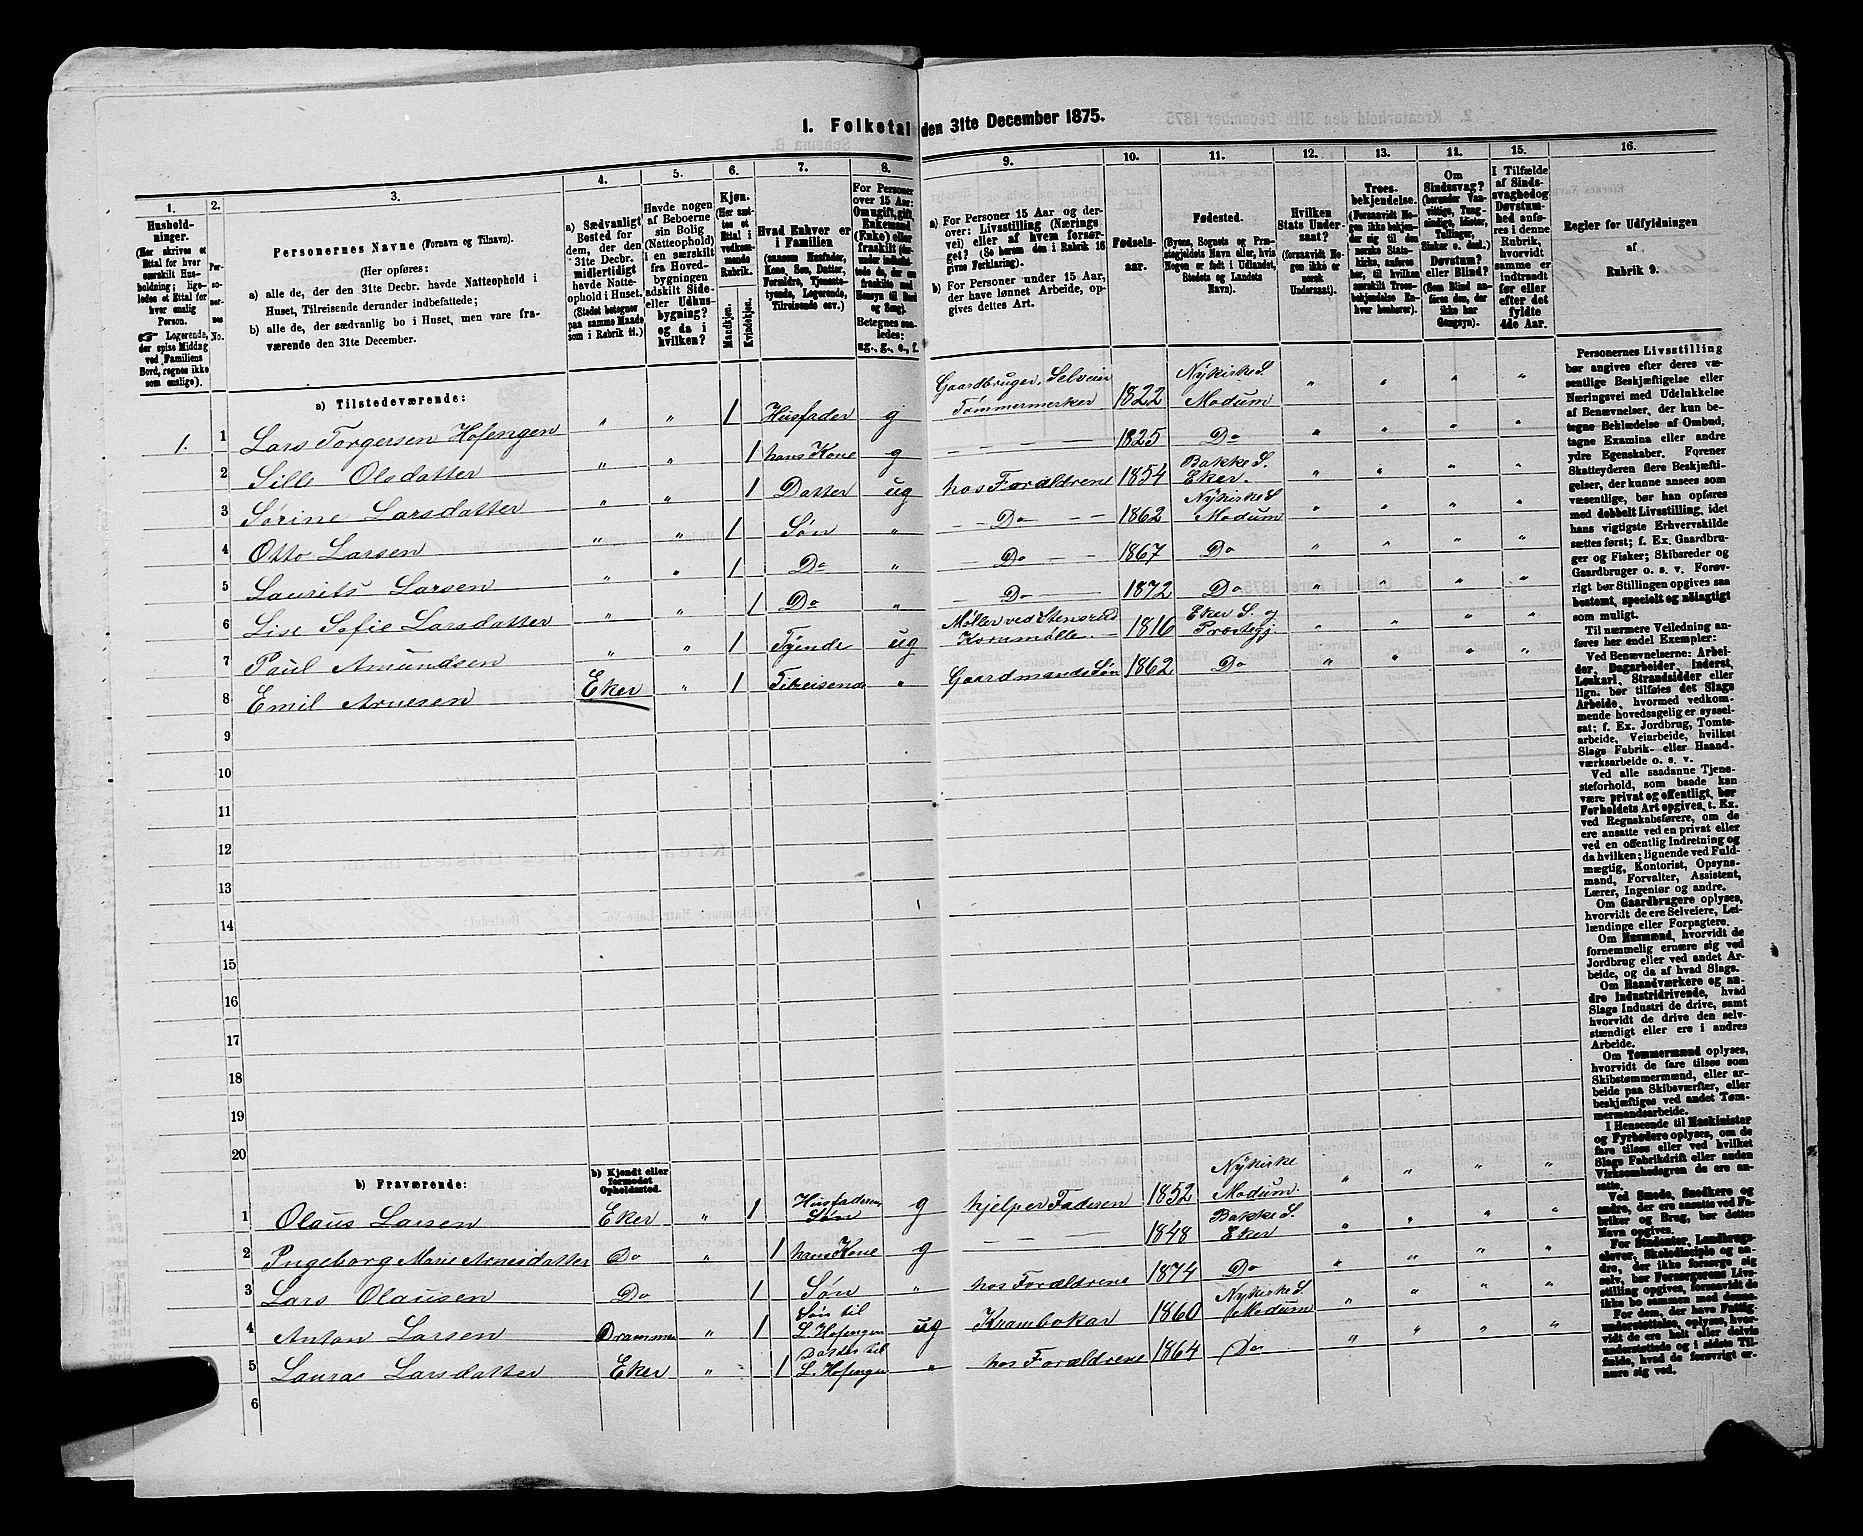 1. Folketal den 31te December 1875.
1.
2.
3.
4.
5.
6.
7.
8.
9.
10.
11.
12.
13.
14.
15.
16.
Husholdninger.
(Her skrives et Ettal for hver særskilt Husholdning; ligeledes et Ettal for hver enslig Person.
☞ Logerende, der spise Middag ved Familiens Bord, regnes ikke som enslige).
Personernes No.
Personernes Navne (Fornavn og Tilnavn).
(Her opføres:
a) alle de, der den 31te Decbr. havde Natteophold i
Huset, Tilreisende derunder indbefattede;
b) alle de, der sædvanlig bo i Huset, men vare fra-
værende den 31te December.
a) Sædvanligt Bosted for dem, der den 31te Decbr. midlertidigt havde Natteophold i Huset.
(Stedet betegnes paa samme Maade som i Rubrik 11.)
Havde nogen af Beboerne sin Bolig (Natteophold) i en særskilt fra Hovedbygningen adskilt Side- eller Udhusbygning? og da i hvilken?
Kjøn.
(Her sættes et Ettal i vedkommende Rubrik.
Mandkjøn.
Kvindekjøn.
Hvad Enhver er i Familien
(saasom Husfader, Kone, Søn, Datter, Forældre, Tjenestetyende, Logerende, Tilreisende osv.)
For Personer over 15 Aar: Om ugift, gift, Enkemand (Enke) eller fraskilt
Betegnes saaledes:
ug., g., e., f.
a) For Personer 15 Aar og derover: Livsstilling (Næringsvei) eller af hvem forsørget? (Se herom den i Rubrik 16 givne Forklaring).
b) For Personer under 15 Aar, der have lønnet Arbeide, opgives dettes Art.
Fødsels-
aar.
Fødested.
(Byens, Sognets og Præstegjeldets Navn, eller, hvis Nogen er født i Udlandet, Stedets og Landets Navn).
Hvilken Stats Undersaat?
(forsaavidt Nogen ikke er norsk Undersaat).
Troesbekjendelse.
(Forsaavidt Nogen ikke bekjender sig til den norske Statskirke, anføres her, til hvilken særskilt Troesbekjendelse Enhver henhører).
Om Sindssvag?
Døvstum?
eller Blind?
(Som Blind anføres den, der ikke har Gangsyn).
I Tilfælde af Sindssvaghed og Døvstumhed anføres i denne Rubrik, hvorvidt samme er indtraadt før eller efter det fyldte 4de Aar.
Regler for Udfyldningen
af
Rubrik 9.
a) Tilstedeværende:
1. 1 Lars Torgersen Hofengen " " 1 Husfader g Gaardbruger, Selveier Tømmermerker 1822 Nykirke S. Modum " " " "
2 Sille Olsdatter " " 1 hans Kone g — — — 1825 Do " " " "
3 Sørine Larsdatter " " 1 Datter ug hos Forældrene 1854 Bakke S. Eker. " " " "
4 Otto Larsen " " 1 Søn " — Do — — 1862 Nykirke S Modum " " " "
5 Laurits Larsen " " 1 Do " — Do — — 1867 Do " " " "
6 Lise Sofie Larsdatter " " 1 Do " Do — 1872 Do " " " "
7 Paul Amundsen " " 1 Tyende ug Møller ved Stensrud Kornmølle 1816 Eker S. og Prestegj. " " " "
8 Emil Arnesen Eker " 1 Tilreisende " Gaardmands Søn 1862 Do " " " "
9
10
11
12
13
14
15
16
17
18
19
20
b) Fraværende:
b) Kjendt eller formodet Opholdssted.
1 Olaus Larsen Eker " 1 Husfaderens Søn g hjelper Faderen 1852 Nykirke Modum " " " "
2 Ingeborg Marie Arnesdatter Do " 1 hans Kone g — — — 1848 Bakke S. Eker " " " "
3 Lars Olausen Do 1 Søn " hos Forældrene 1874 Do " " " "
4 Anton Larsen Drammen " 1 Søn til L. Hofengen ug Krambokar 1860 Nykirke S. Modum " " " "
5 Laura Larsdatter Eker " 1 Datter til L. Hofengen " hos Forældrene 1864 Do " " " "
6
Personernes Livsstilling
bør angives efter deres væ-
sentlige Beskjæftigelse eller
Næringsvei med Udelukkelse
af Benævnelser, der kun be-
tegne Beklædelse af Ombud,
tagne Examina eller andre
ydre Egenskaber. Forener
Skatteyderen flere Beskjæfti-
gelser, der kunne ansees som
væsentlige, bør han opføres
med dobbelt Livsstilling, idet
hans vigtigste Erhvervskilde
sættes først; f. Ex. Gaardbru-
ger og Fisker; Skibsreder og
Gaardbruger o. s. v. Forøv-
rigt bør Stillingen opgives saa
bestemt, specielt og nøiagtigt
som muligt.
Til nærmere Veiledning an-
føres her endel Exempler:
Ved Benævnelserne: Arbei-
der, Dagarbeider, Inderst,
Løskarl, Strandsidder eller
lign. bør tilføies det Slags
Arbeide, hvormed vedkom-
mende hovedsagelig er syssel-
sat; f. Ex. Jordbrug, Tomte-
arbeide, Veiarbeide, hvilket
Slags Fabrik- eller Haand-
værksarbeide o. s. v.
Ved alle saadanne Tjene-
steforhold, som baade kan
være privat og offentligt, bør
Forholdets Art opgives, t. Ex.
ved Regnskabsførere, om de
ere ansatte ved en privat eller
ved en offentlig Indretning og
da hvilken; lignende ved Fuld-
mægtig, Kontorist, Opsyns-
mand, Forvalter, Assistent,
Lærer, Ingeniør og andre.
Om Gaardbrugere oplyses,
hvorvidt de ere Selveiere, Lei-
lændinge eller Forpagtere.
Om Husmænd, hvorvidt de
fornemmelig ernære sig ved
Jordbrug eller ved andet Ar-
beide, og da af hvad Slags.
Om Haandværkere og an-
dre industridrivende, hvad
Slags Industri de drive, samt
hvorvidt de drive den selv-
stændigt eller ere i andres
Arbeide.
Om Tømmermænd oplyses,
hvorvidt de fare tilsøs som
Skibstømmermænd, eller ar-
beide paa Skibsværfter, eller
beskjæftiges ved andet Tøm-
mermandsarbeide.
I Henseende til Maskinister
og Fyrbødere oplyses, om de
fare tilsøs eller ved hvilket
Slags Fabrikdrift eller anden
Virksomhedsgren de ere an-
satte.
Ved Smede, Snedkere og
andre, der ere ansatte ved Fa-
briker og Brug, bør dettes
Navn opgives.
For Studenter, Landbrugs-
elever, Skoledisciple og an-
dre, der ikke forsørge sig
selv, bør Forsørgerens Livs-
stilling opgives, forsaavidt de
ikke bo sammen med denne.
For dem, der have Fattig-
understøttelse, oplyses, hvor-
vidt de ere helt eller delvis
understøttede og i sidste Til-
fælde, hvad de forøvrigt er-
nære sig ved.